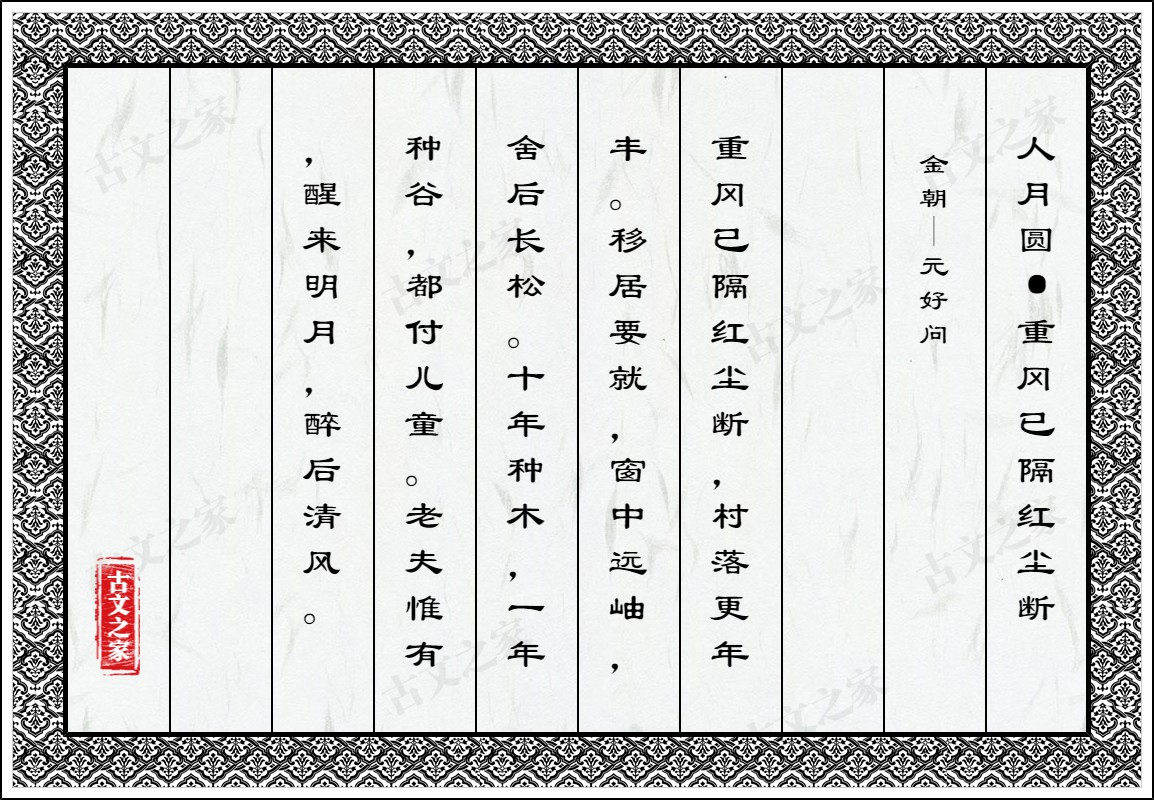 人月圆●重冈已隔红尘断
金朝—元好问
重冈已隔红尘断，村落更年
丰。移居要就，窗中远岫，
舍后长松。十年种木，一年
种谷，都付儿童。老夫惟有
，醒来明月，醉后清风。
古文之家